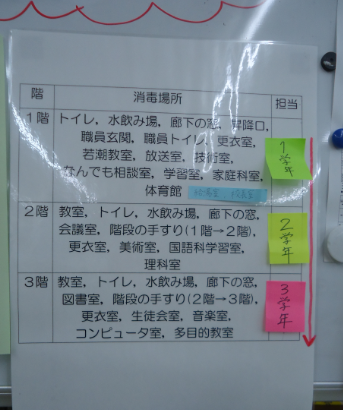 階 消毒場所 担当
1階 トイレ，水飲み場，廊下の窓，昇降口，
職員玄関，職員トイレ，更衣室，
若潮教室，放送室，技術室，
なんでも相談室，学習室，家庭科室，
体育館
1学年
2階 教室，トイレ，水飲み場，廊下の窓，
会議室，階段の手すり(1階→2階)，
更衣室，美術室，国語科学習室，
理科室
2学年
3階 教室，トイレ，水飲み場，廊下の窓，
図書室，階段の手すり(2階→3階)，
更衣室，生徒会室，音楽室，
コンピュータ室，多目的教室
3学年